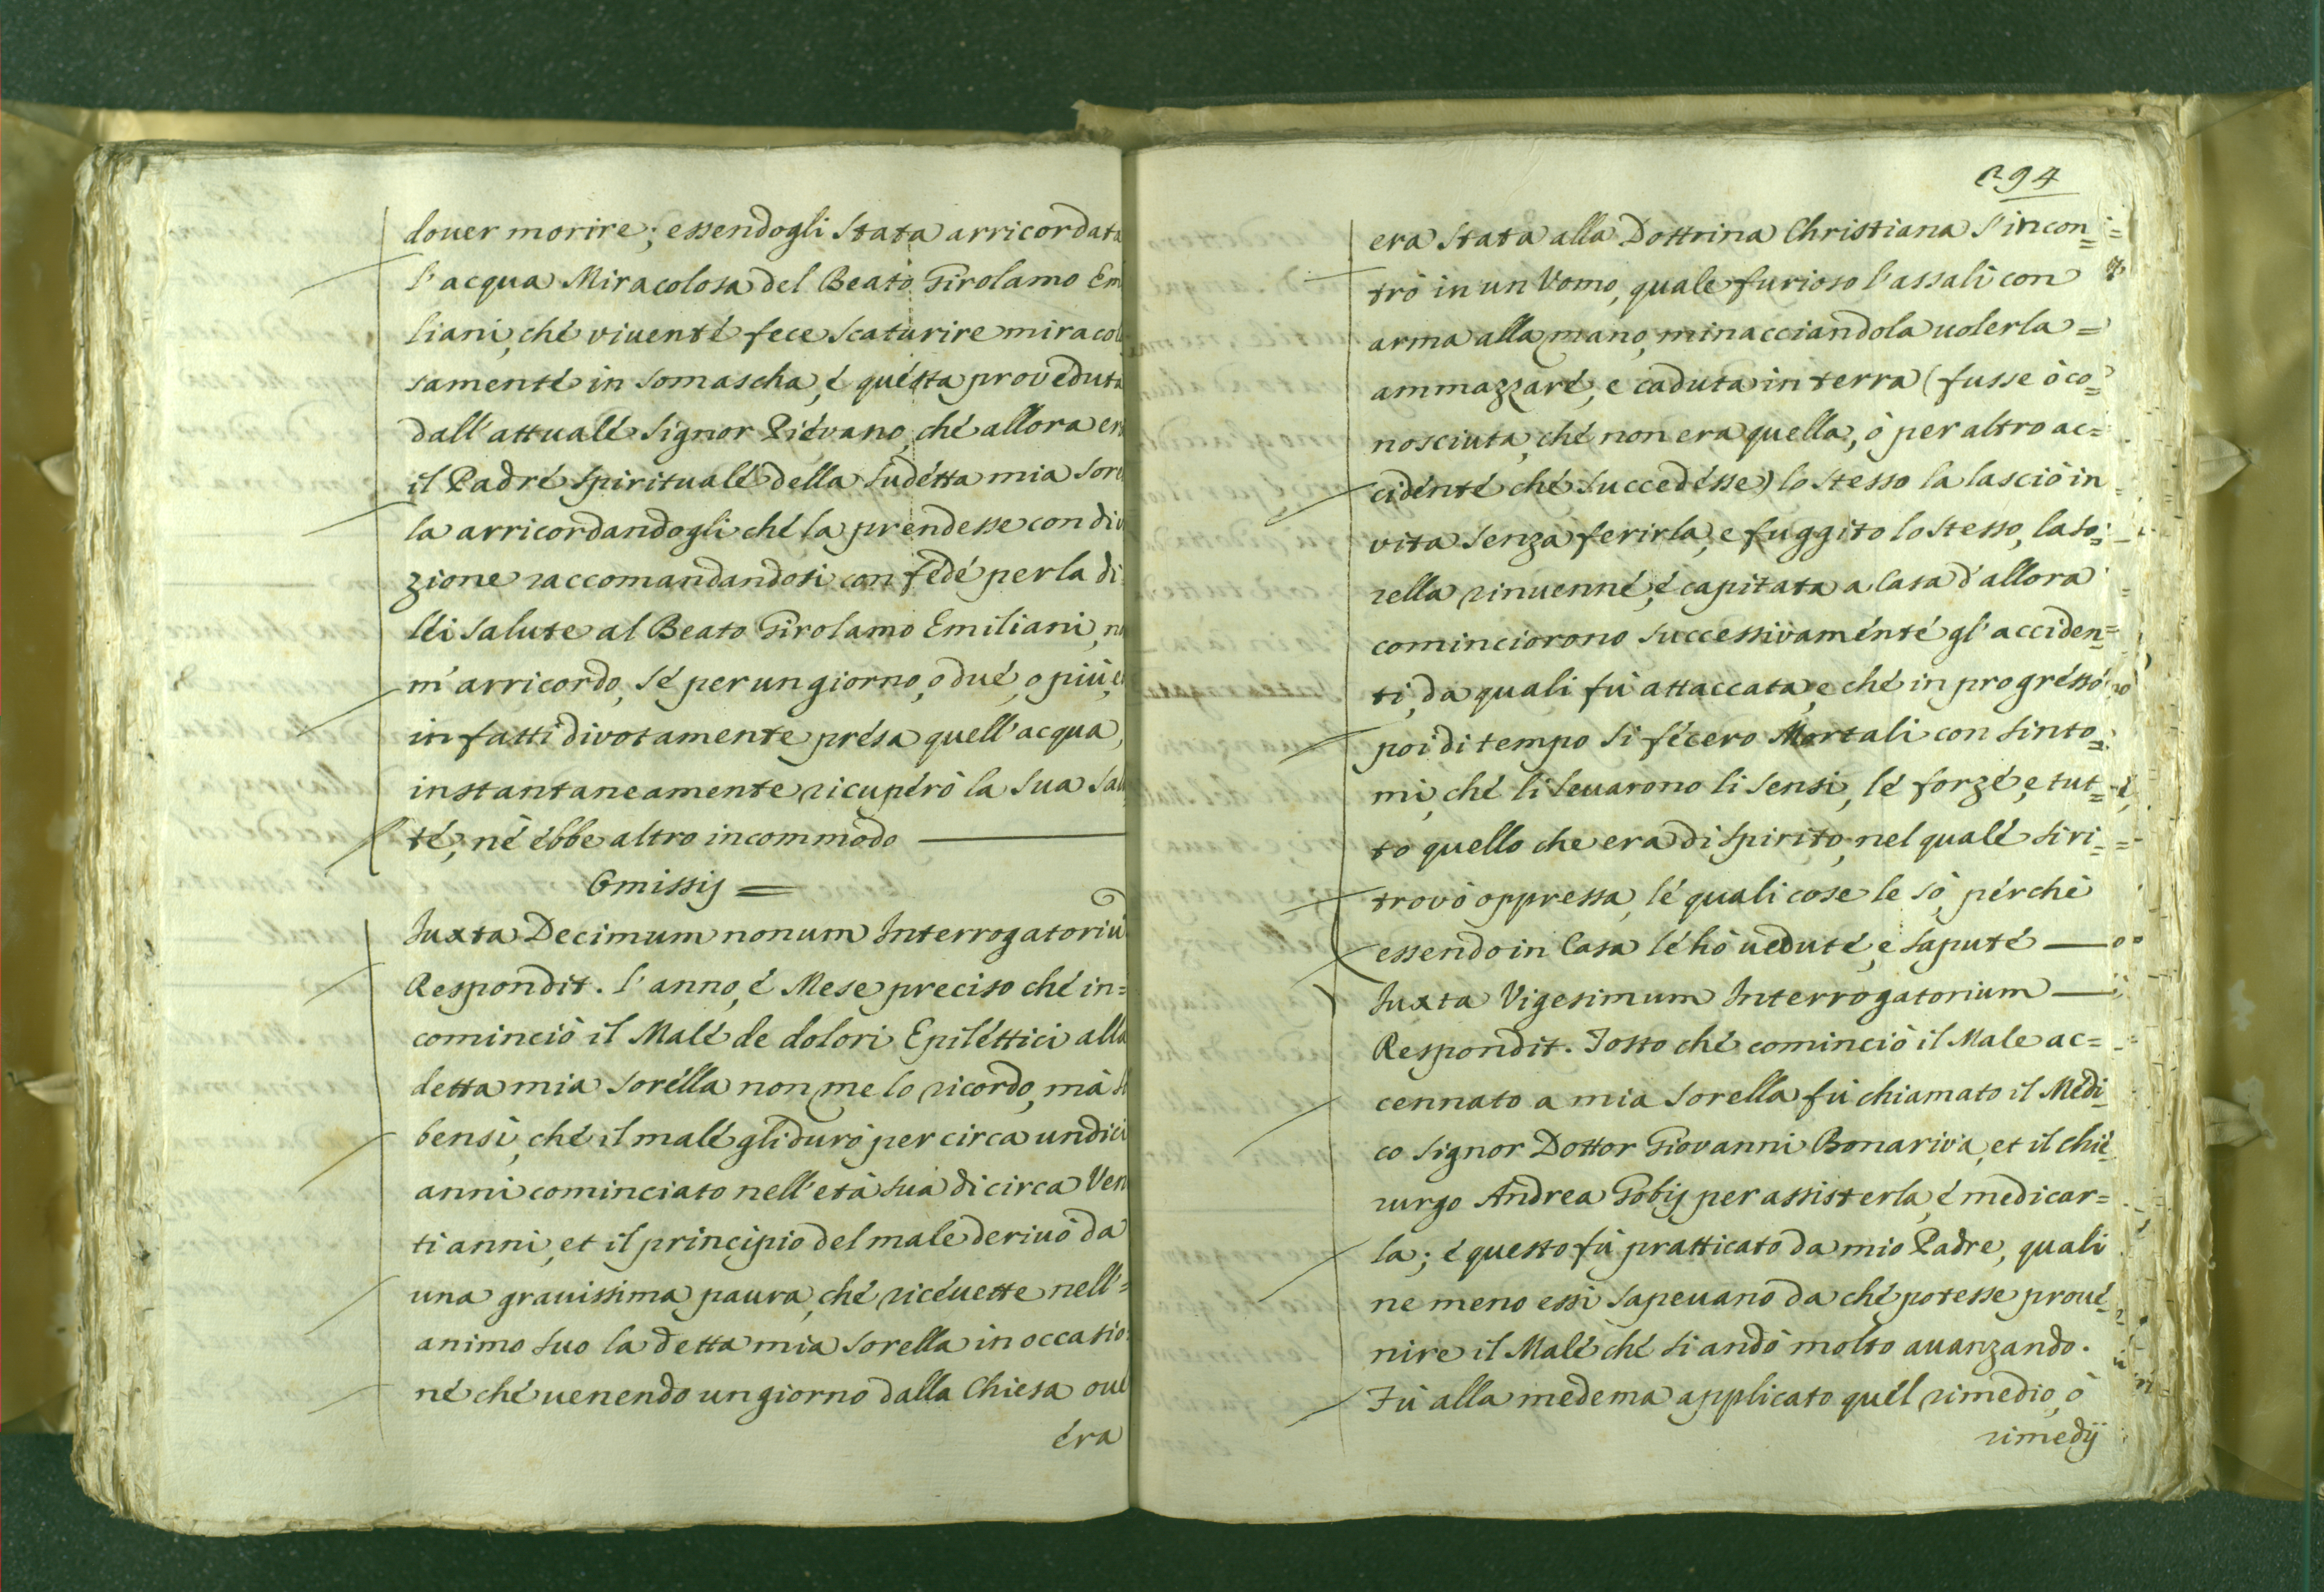 douer morire; essendogli stata arricordata
l'acqua Miracolosa del Beato Girolamo Em
liani, ché viuenté fece scaturire miracol
samenté in Somascha, é quésta proveduta
dall'attualé Signor Piévano, ché allora era
il Padré Spiritualé della sudétta mia sore
la arricordandogli ché la prendesse con div
zione raccomandandosi con fedé per la di
léi salute al Beato Girolamo Emiliani, no
m'arricordo, sé per un giorno, o dué, o più, e
in fatti divotamente présa quell'acqua,
instantaneamente ricupérò la sua salu
té, né ébbe altro incommodo
Omissis =
Juxta Decimum nonum Interrogatoriũ
Respondit. l'anno, é Mese preciso ché in=
cominciò il Malé de dolori Epiléttici alla
detta mia sorélla non me lo ricordo, mà so
bensì, ché il malé gli durò per circa undici
anni cominciato nell'età sua di circa Ven
ti anni, et il principio del male deriuò da
una grauissima paura, ché ricéuette nell'=
animo suo la detta mia sorella in occasio
né ché uenendo un giorno dalla Chiesa oue
éra
294
era stata alla Dottrina Christiana s'incon=
trò in un Vomo, quale furioso l'assalì con
arma alla mano, minacciandola uolerla =
ammazzaré, e caduta in terra (fusse ò co=
nosciuta, ché non era quella, ò per altro ac=
cidénté ché succedésse) lo stesso la lasciò in
vita senza ferirla, e fuggito lo stesso, la so=
rella rinuenné, é capitata a Casa d'allora
cominciorono successivaménté gl'acciden=
ti, da quali fù attaccata, e ché in progrésso
poi di tempo si fécero Mortali con sinto=
mi, ché li leuarono li sensi, lé forzé, e tut=
to quello che era di spirito, nel qualé si ri=
trovò oppressa, lé quali cose le sò, pérchè
essendo in Casa lé hò ueduté, e saputé
Juxta Vigesimum Interrogatorium
Respondit. Tosto ché cominciò il Male ac=
cennato a mia sorella fù chiamato il Médi
co Signor Dottor Giovanni Bonariva, et il chié
rurgo Andrea Gobij per assisterla, é medicar=
la; é questo fù pratticato da mio Padre, quali
ne meno essi sapeuano da ché potesse proué
nire il Malé ché si andò molto auanzando.
Fù alla medema applicato quél rimedio, ò
rimedij